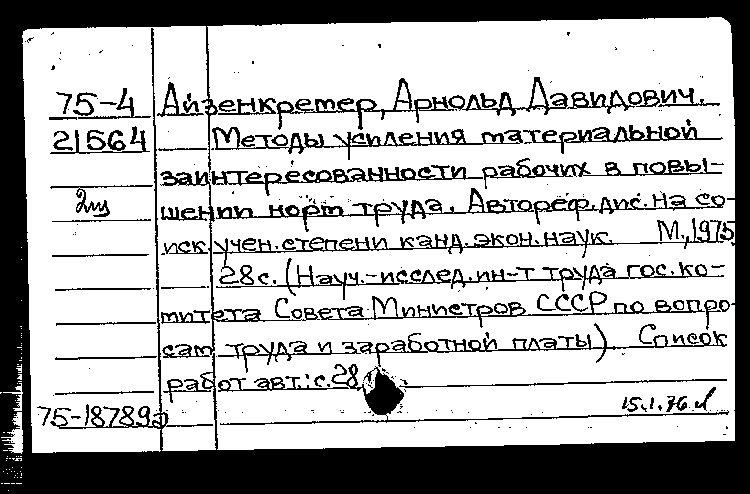 75-4 Айзенкремер, Арнольд Давидович.
21564 Методы усиления материальной
заинтересованности рабочих в повы-
2щ шении норм труда. Автореф. дис. на со-
иск. учен. степени канд. экон. наук. М., 1975
28 с. (Науч.-исслед. ин-т труда гос. ко-
митета Совета Министров СССР по вопро-
сам труда и заработной платы). Список
работ авт.: с. 28
75-18789а 15.1.76.